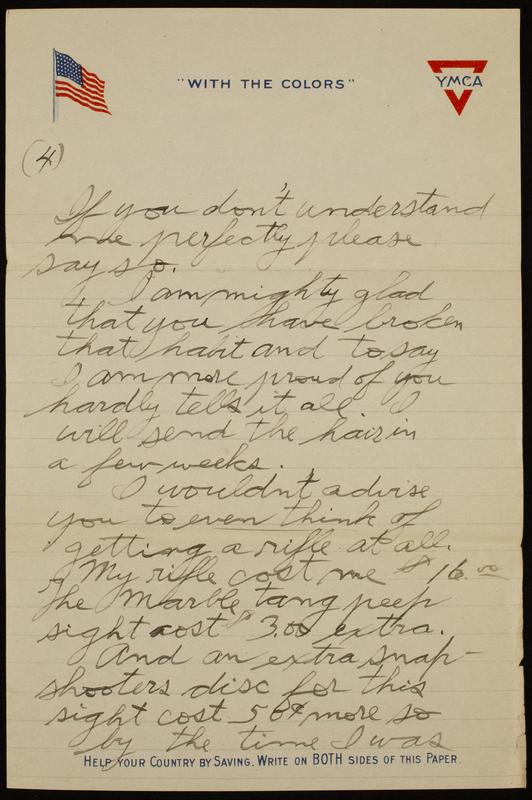 "WITH THE COLORS"
YMCA
(4)
If you don't understand
me perfectly please
say so.
I am mighty glad
that you have broken
that habit and to say
I am more proud of you
hardly tells it all. I
will send the hair in
a few weeks.
I wouldn't advise
you to even think of
getting a rifle at all.
My rifle cost me $16.00
The Marble tang peep
sight cost $3.00 extra.
And an extra snap-
shooters disc for this
sight cost 50¢ more so
by the time I was
HELP YOUR COUNTRY BY SAVING. WRITE ON BOTH SIDES OF THIS PAPER.